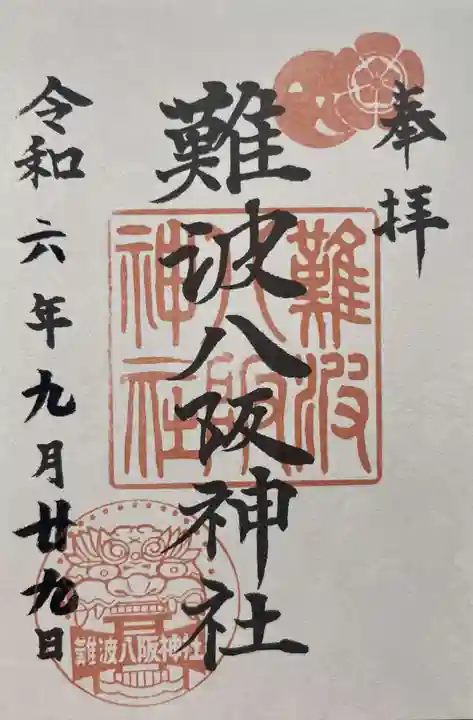 奉拝
難波八阪神社
難波八阪神社
令和六年九月廿九日
難波八阪神社